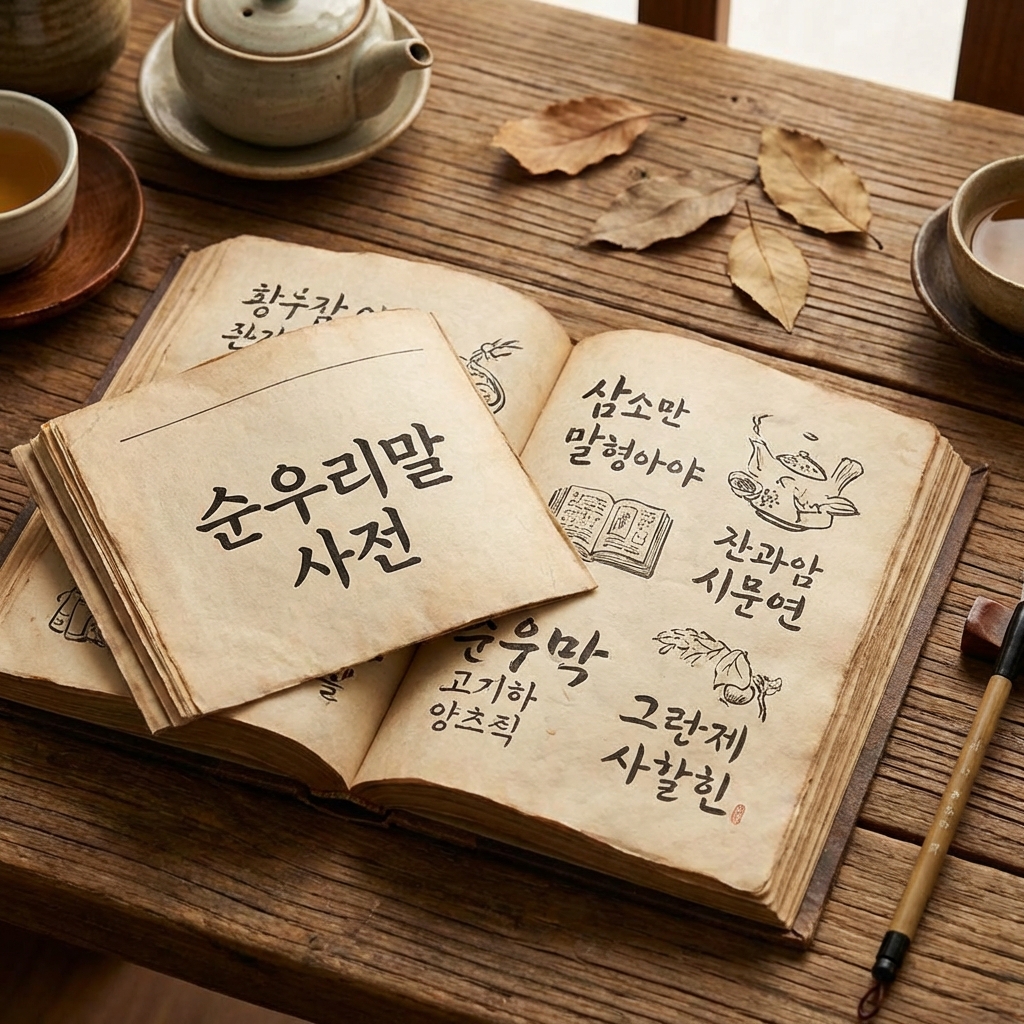 순우리말
사전
삼소만
말형아야
잔과암
시문연
순우막
고기하
양츠직
그런제
사할힌